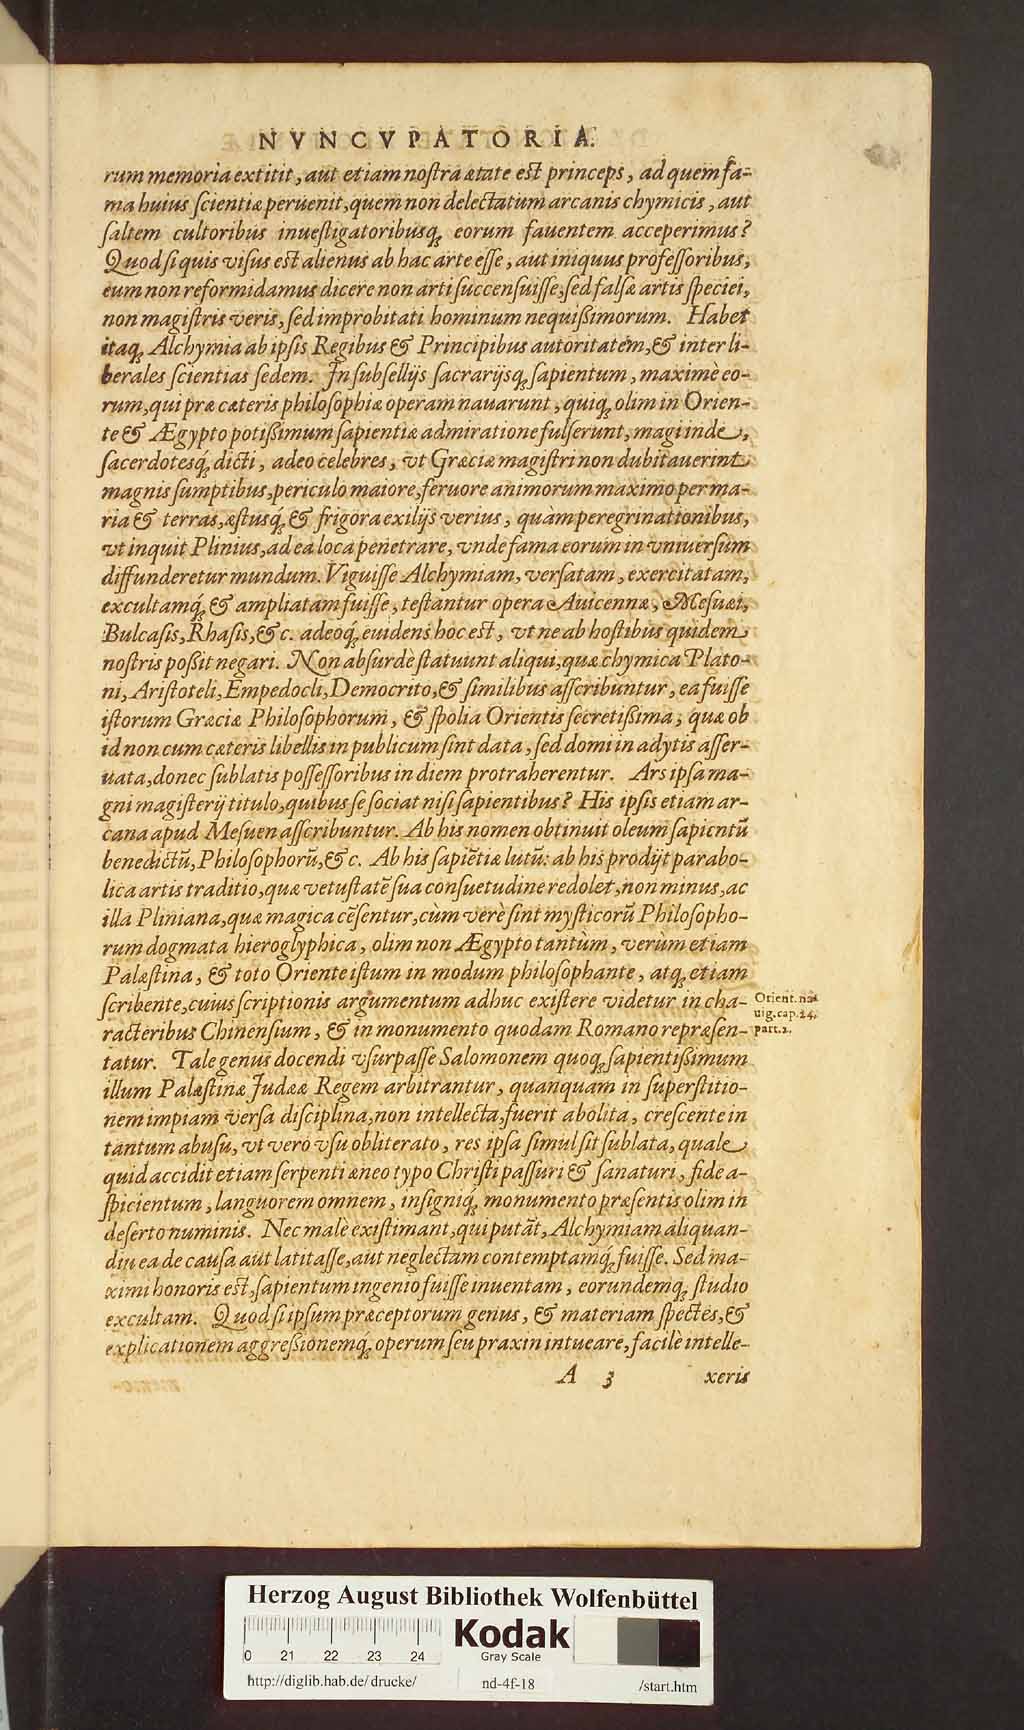 NVNCVPATORIA.
rum memoria extitit, aut etiam nostra ætate est princeps, ad quem fa-
ma huius scientiæ peruenit, quem non delectatum arcanis chymicis, aut
saltem cultoribus inuestigatoribusq́; eorum fauentem acceperimus?
Quod si quis visus est alienus ab hac arte esse, aut iniquus professoribus,
eum non reformidamus dicere non arti succensuisse, sed falsæ artis speciei,
non magistris veris, sed improbitati hominum nequißimorum. Habet
itaq; Alchymia ab ipsis Regibus & Principibus autoritatem, & inter li-
berales scientias sedem. In subsellijs sacrarijsq; sapientum, maximè eo-
rum, qui præ cæteris philosophiæ operam nauarunt, quiq; olim in Orien-
te & Ægypto potißimum sapientiæ admiratione fulserunt, magi inde,
sacerdotesq́; dicti, adeo celebres, vt Græciæ magistri non dubitauerint
magnis sumptibus, periculo maiore, feruore animorum maximo per ma-
ria & terras, æstusq́; & frigora exilijs verius, quàm peregrinationibus,
vt inquit Plinius, ad ea loca penetrare, vnde fama eorum in vniuersum
diffunderetur mundum. Viguisse Alchymiam, versatam, exercitatam,
excultamq́; & ampliatam fuisse, testantur opera Auicennæ, Mesuæi,
Bulcasis, Rhasis, &c. adeoq́; euidens hoc est, vt ne ab hostibus quidem
nostris poßit negari. Non absurdè statuunt aliqui, quæ chymica Plato-
ni, Aristoteli, Empedocli, Democrito, & similibus asscribuntur, ea fuisse
istorum Græciæ Philosophorum, & spolia Orientis secretißima, quæ ob
id non cum cæteris libellis in publicum sint data, sed domi in adytis asser-
uata, donec sublatis possessoribus in diem protraherentur. Ars ipsa ma-
gni magisterij titulo, quibus se sociat nisi sapientibus? His ipsis etiam ar-
cana apud Mesuen asscribuntur. Ab his nomen obtinuit oleum sapientū
benedictū, Philosophorū, &c. Ab his sapiẽtiæ lutū: ab his prodijt parabo-
lica artis traditio, quæ vetustatẽ sua consuetudine redolet, non minus, ac
illa Pliniana, quæ magica cẽsentur, cùm verè sint mysticorū Philosopho-
rum dogmata hieroglyphica, olim non Ægypto tantùm, verùm etiam
Palæstina, & toto Oriente istum in modum philosophante, atq; etiam
scribente, cuius scriptionis argumentum adhuc existere videtur in cha-
racteribus Chinensium, & in monumento quodam Romano repræsen-
tatur. Tale genus docendi vsurpasse Salomonem quoq; sapientißimum
illum Palæstinæ Judææ Regem arbitrantur, quanquam in superstitio-
nem impiam versa disciplina, non intellecta, fuerit abolita, crescente in
tantum abusu, vt vero vsu obliterato, res ipsa simul sit sublata, quale
quid accidit etiam serpenti æneo typo Christi passuri & sanaturi, fide a-
spicientum, languorem omnem, insigniq́; monumento præsentis olim in
deserto numinis. Nec malè existimant, qui putãt, Alchymiam aliquan-
diu ea de causa aut latitasse, aut neglectam contemptamq́; fuisse. Sed ma-
ximi honoris est, sapientum ingenio fuisse inuentam, eorundemq; studio
excultam. Quod si ipsum præceptorum genus, & materiam spectes, &
explicationem aggreßionemq́; operum seu praxin intueare, facilè intelle-
A 3 xeris
Orient. na-
uig. cap. 24.
part. 2.
Herzog August Bibliothek Wolfenbüttel
0 21 22 23 24
Kodak
Gray Scale
http://diglib.hab.de/drucke/ nd-4f-18 /start.htm